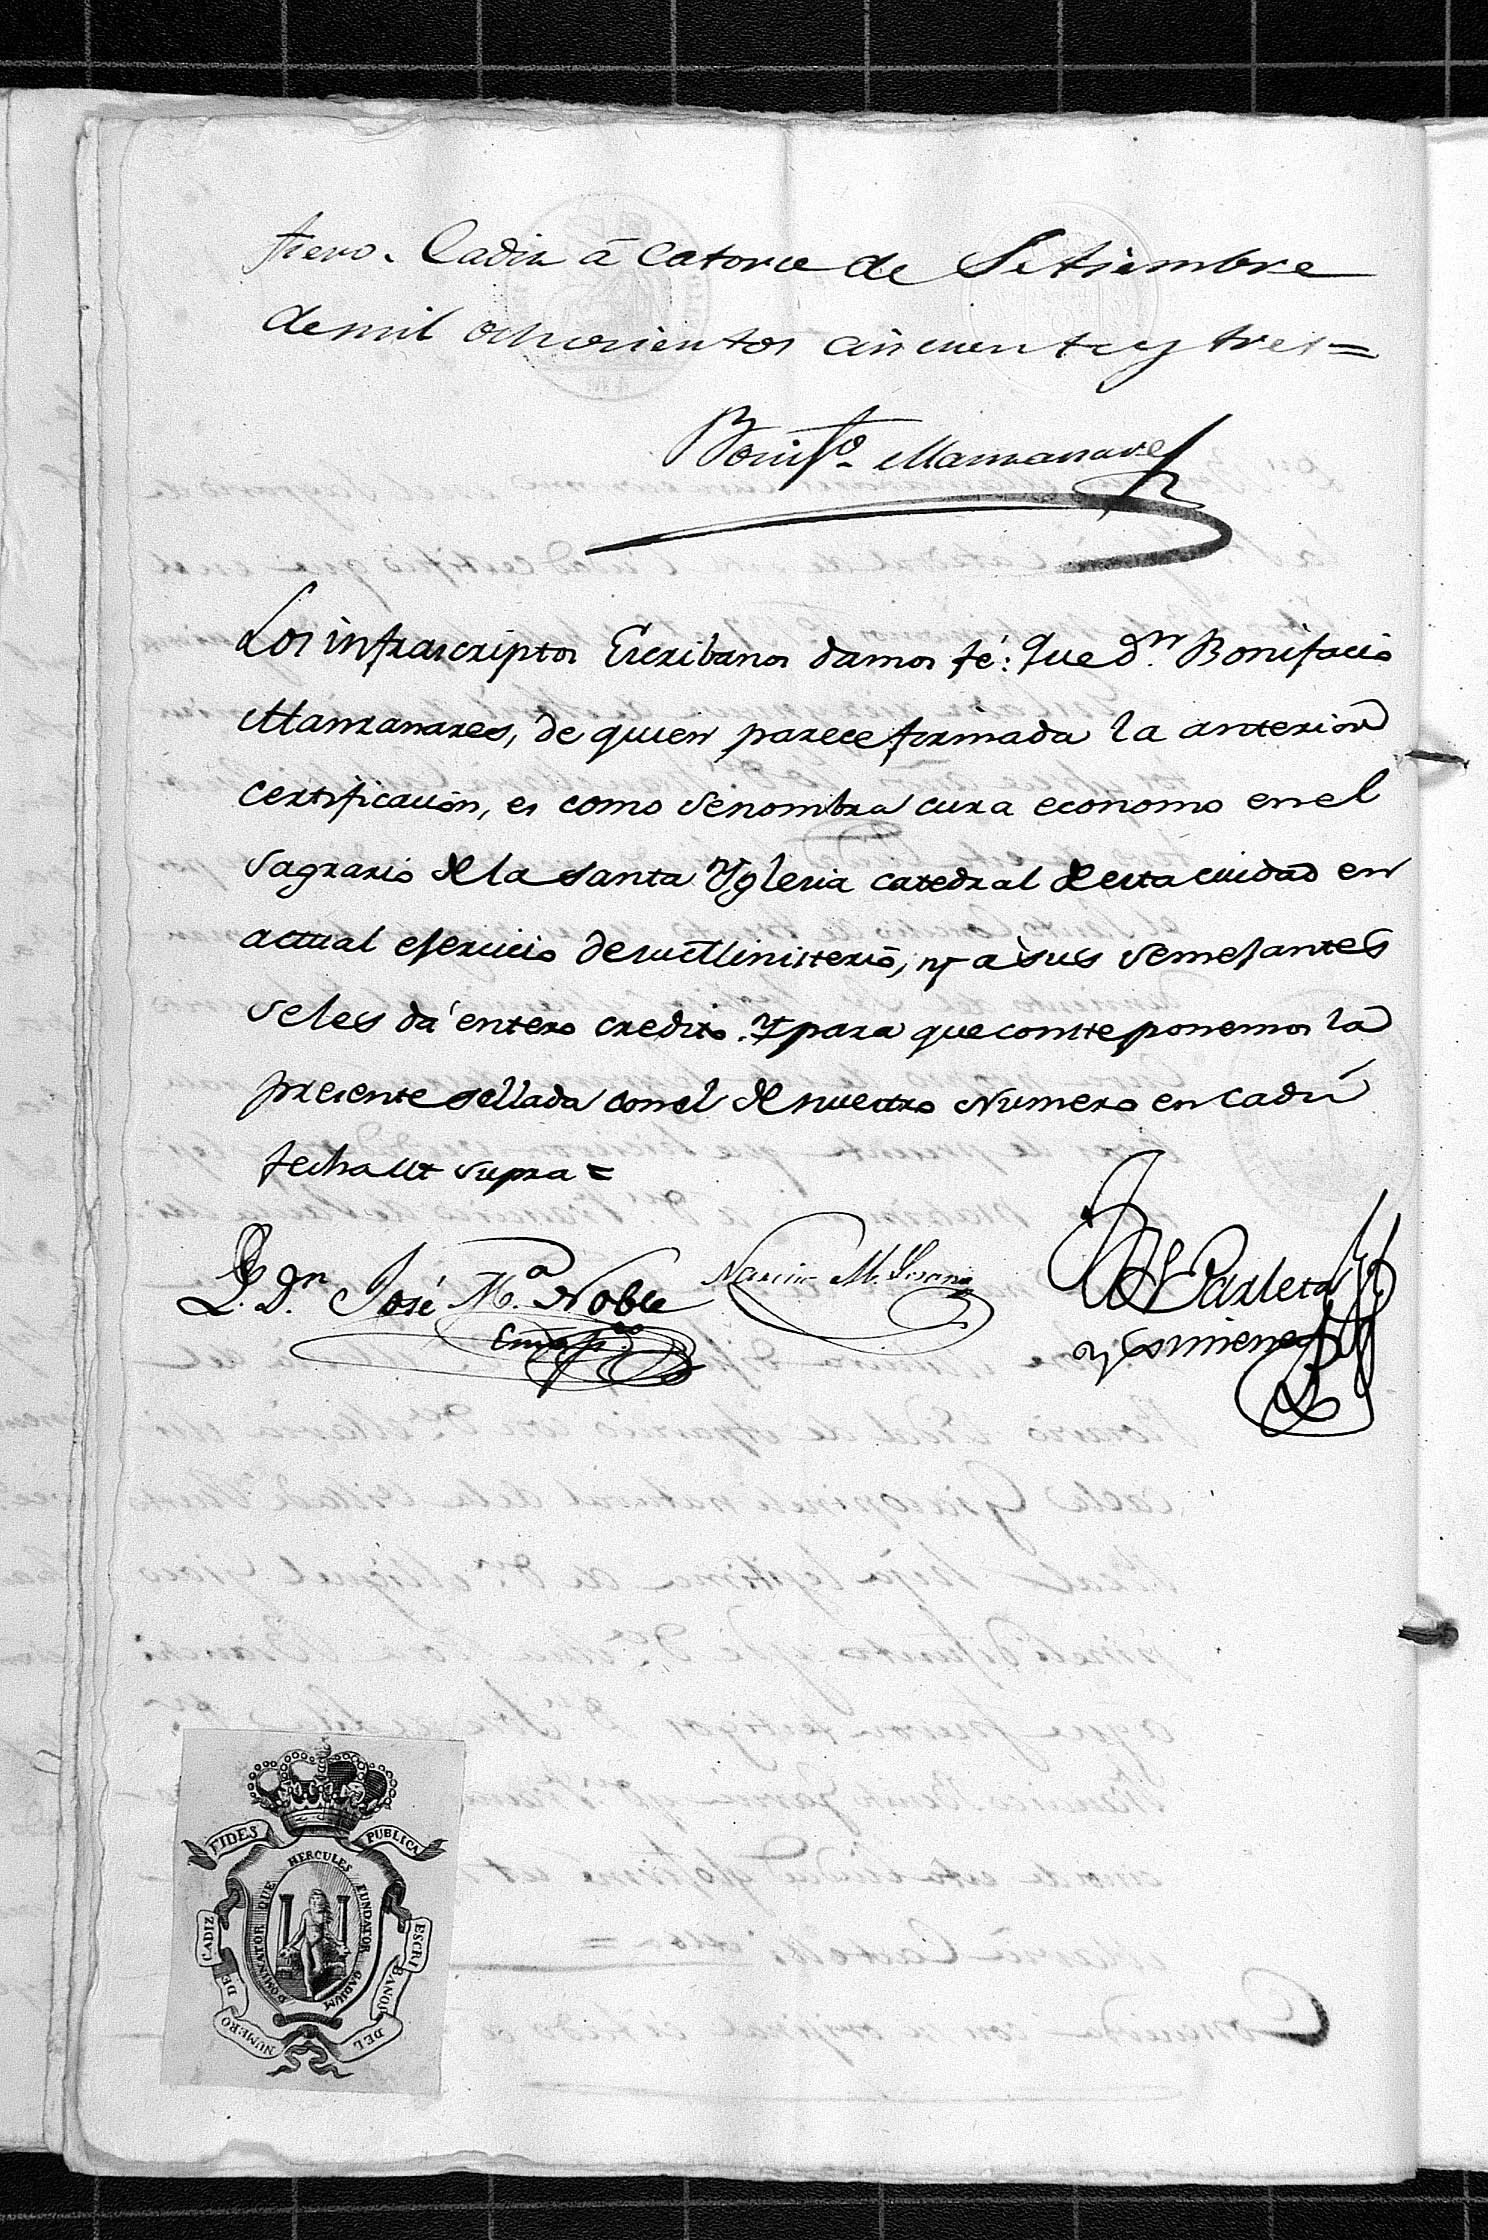 fiero. Cadiz á Catorce de Setiembre
de mil ochocientos cincuenta y tres=
Bonif.º Manzanares
Los infrascriptos Escribanos damos fé: Que D.n Bonifacio
Manzanares, de quien parece firmada la anterior
certificacion, es como se nombra cura economo en el
Sagrario de la Santa Yglesia catedral de esta ciudad en
actual egercicio de su Ministerio, y a sus semejantes
se les dá entero credito. Y para que conste ponemos la
presente sellada con el de nuestro Numero en Cadiz
fecha ut supra =
L. D.n José M.a Noble
Narciso M.
y Gimenez
FIDES PUBLICA
HERCULES FUNDATOR GADIUM DOMINATOR QUE
ESCRIBANOS DEL NUMERO DE CADIZ